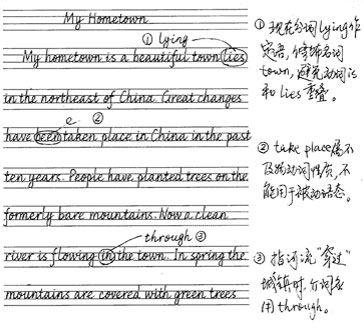 My Hometown
① lying
My hometown is a beautiful town lies
in the northeast of China. Great changes
e ②
have been taken place in China in the past
ten years. People have planted trees on the
formerly bare mountains. Now a clean
through ③
river is flowing in the town. In spring the
mountains are covered with green trees
① 现在分词lying作
定语，修饰名词
town，避免动词is
和lies重叠。
② take place属不
及物动词性质，不
能用于被动语态。
③ 指河流“穿过”
城镇时，介词多
用through。